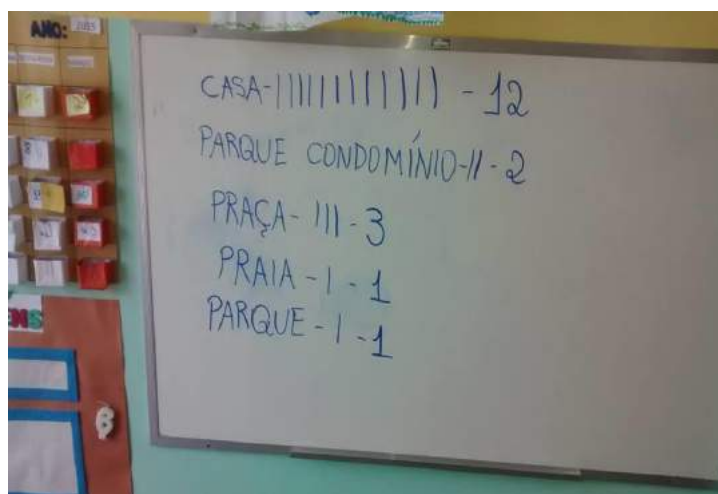 ANO:
CASA-||||||||||||| - 12
PARQUE CONDOMÍNIO-|| - 2
PRAÇA- ||| - 3
PRAIA - | - 1
PARQUE - | - 1
ENS